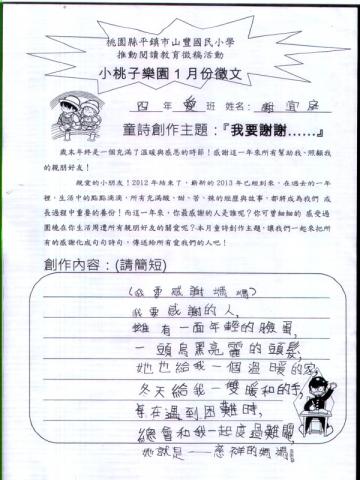 桃園縣平鎮市山豐國民小學
推動閱讀教育徵稿活動
小桃子樂園1月份徵文
四 年 愛 班 姓名: 謝宜
童詩創作主題:『我要謝謝......』
歲末年終是一個充滿了溫暖與感恩的時節!感謝這一年來所有幫助我、照顧我
的親朋好友!
親愛的小朋友!2012年結束了,嶄新的2013年已經到來,在過去的一年
裡,生活中的點點滴滴,所有充滿酸、甜、苦、辣的經歷與故事,都將成為我們 成
長過程中重要的養份!而這一年來,你最感謝的人是誰呢?你可曾細細的 感受過
圍繞在你生活周遭所有親朋好友的關愛呢?本月童詩創作主題,讓我們一起來把所
有的感謝化成句句詩句,傳送給所有愛我們的人吧!
創作內容:(請簡短)
(我要感謝媽媽)
我要感謝的人,
雖有一面年輕的臉蛋,
一頭烏黑亮麗的頭髮,
她也給我一個溫暖的家,
冬天給我一雙暖和的手,
在遇到困難時,
總會和我一起度過難關,
她就是——慈祥的媽媽!